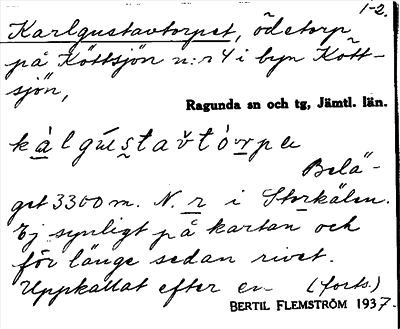 1-2.
Karlgustavtorpet, ödetorp
på Köttsjön n:r 4 i byn Kött-
sjön,
Ragunda sn och tg, Jämtl. län.
Belä-
get 3300 m. N. r i Storkälen.
Ej synligt på kartan och
för länge sedan rivet.
Uppkallat efter en (forts.)
BERTIL FLEMSTRÖM 1937.